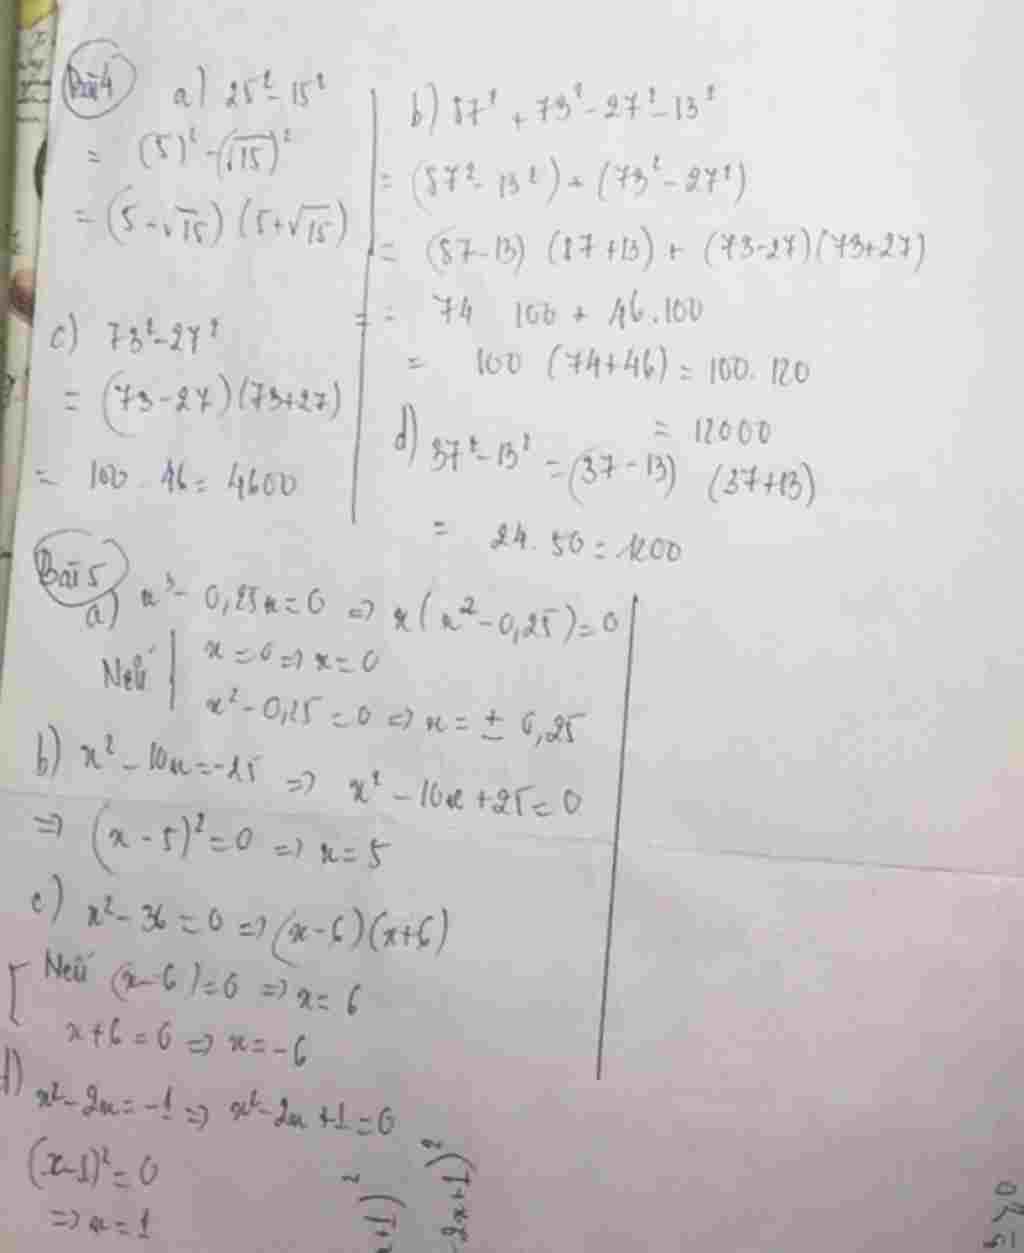 Bài 4
a) 25² - 15²
= (5)² - (√15)²
= (5 - √15) (5 + √15)
b) 87² + 73² - 27² - 13²
= (87² - 13²) + (73² - 27²)
= (87 - 13) (87 + 13) + (73 - 27) (73 + 27)
= 74 100 + 46.100
= 100 (74 + 46) = 100. 120
= 12000
c) 73² - 27²
= (73 - 27) (73 + 27)
= 100 . 46 = 4600
d) 37² - 13² = (37 - 13) (37 + 13)
= 24. 50 = 1200
Bài 5
a) x³ - 0,25x = 0 => x(x² - 0,25) = 0
Nếu | x = 0 => x = 0
x² - 0,25 = 0 => x = ± 0,25
b) x² - 10x = -25 => x² - 10x + 25 = 0
=> (x - 5)² = 0 => x = 5
c) x² - 36 = 0 => (x - 6)(x + 6)
[ Nếu (x - 6) = 0 => x = 6
x + 6 = 0 => x = -6
d) x² - 2x = -1 => x² - 2x + 1 = 0
(x - 1)² = 0
=> x = 1
+1)²
2x + 1)²